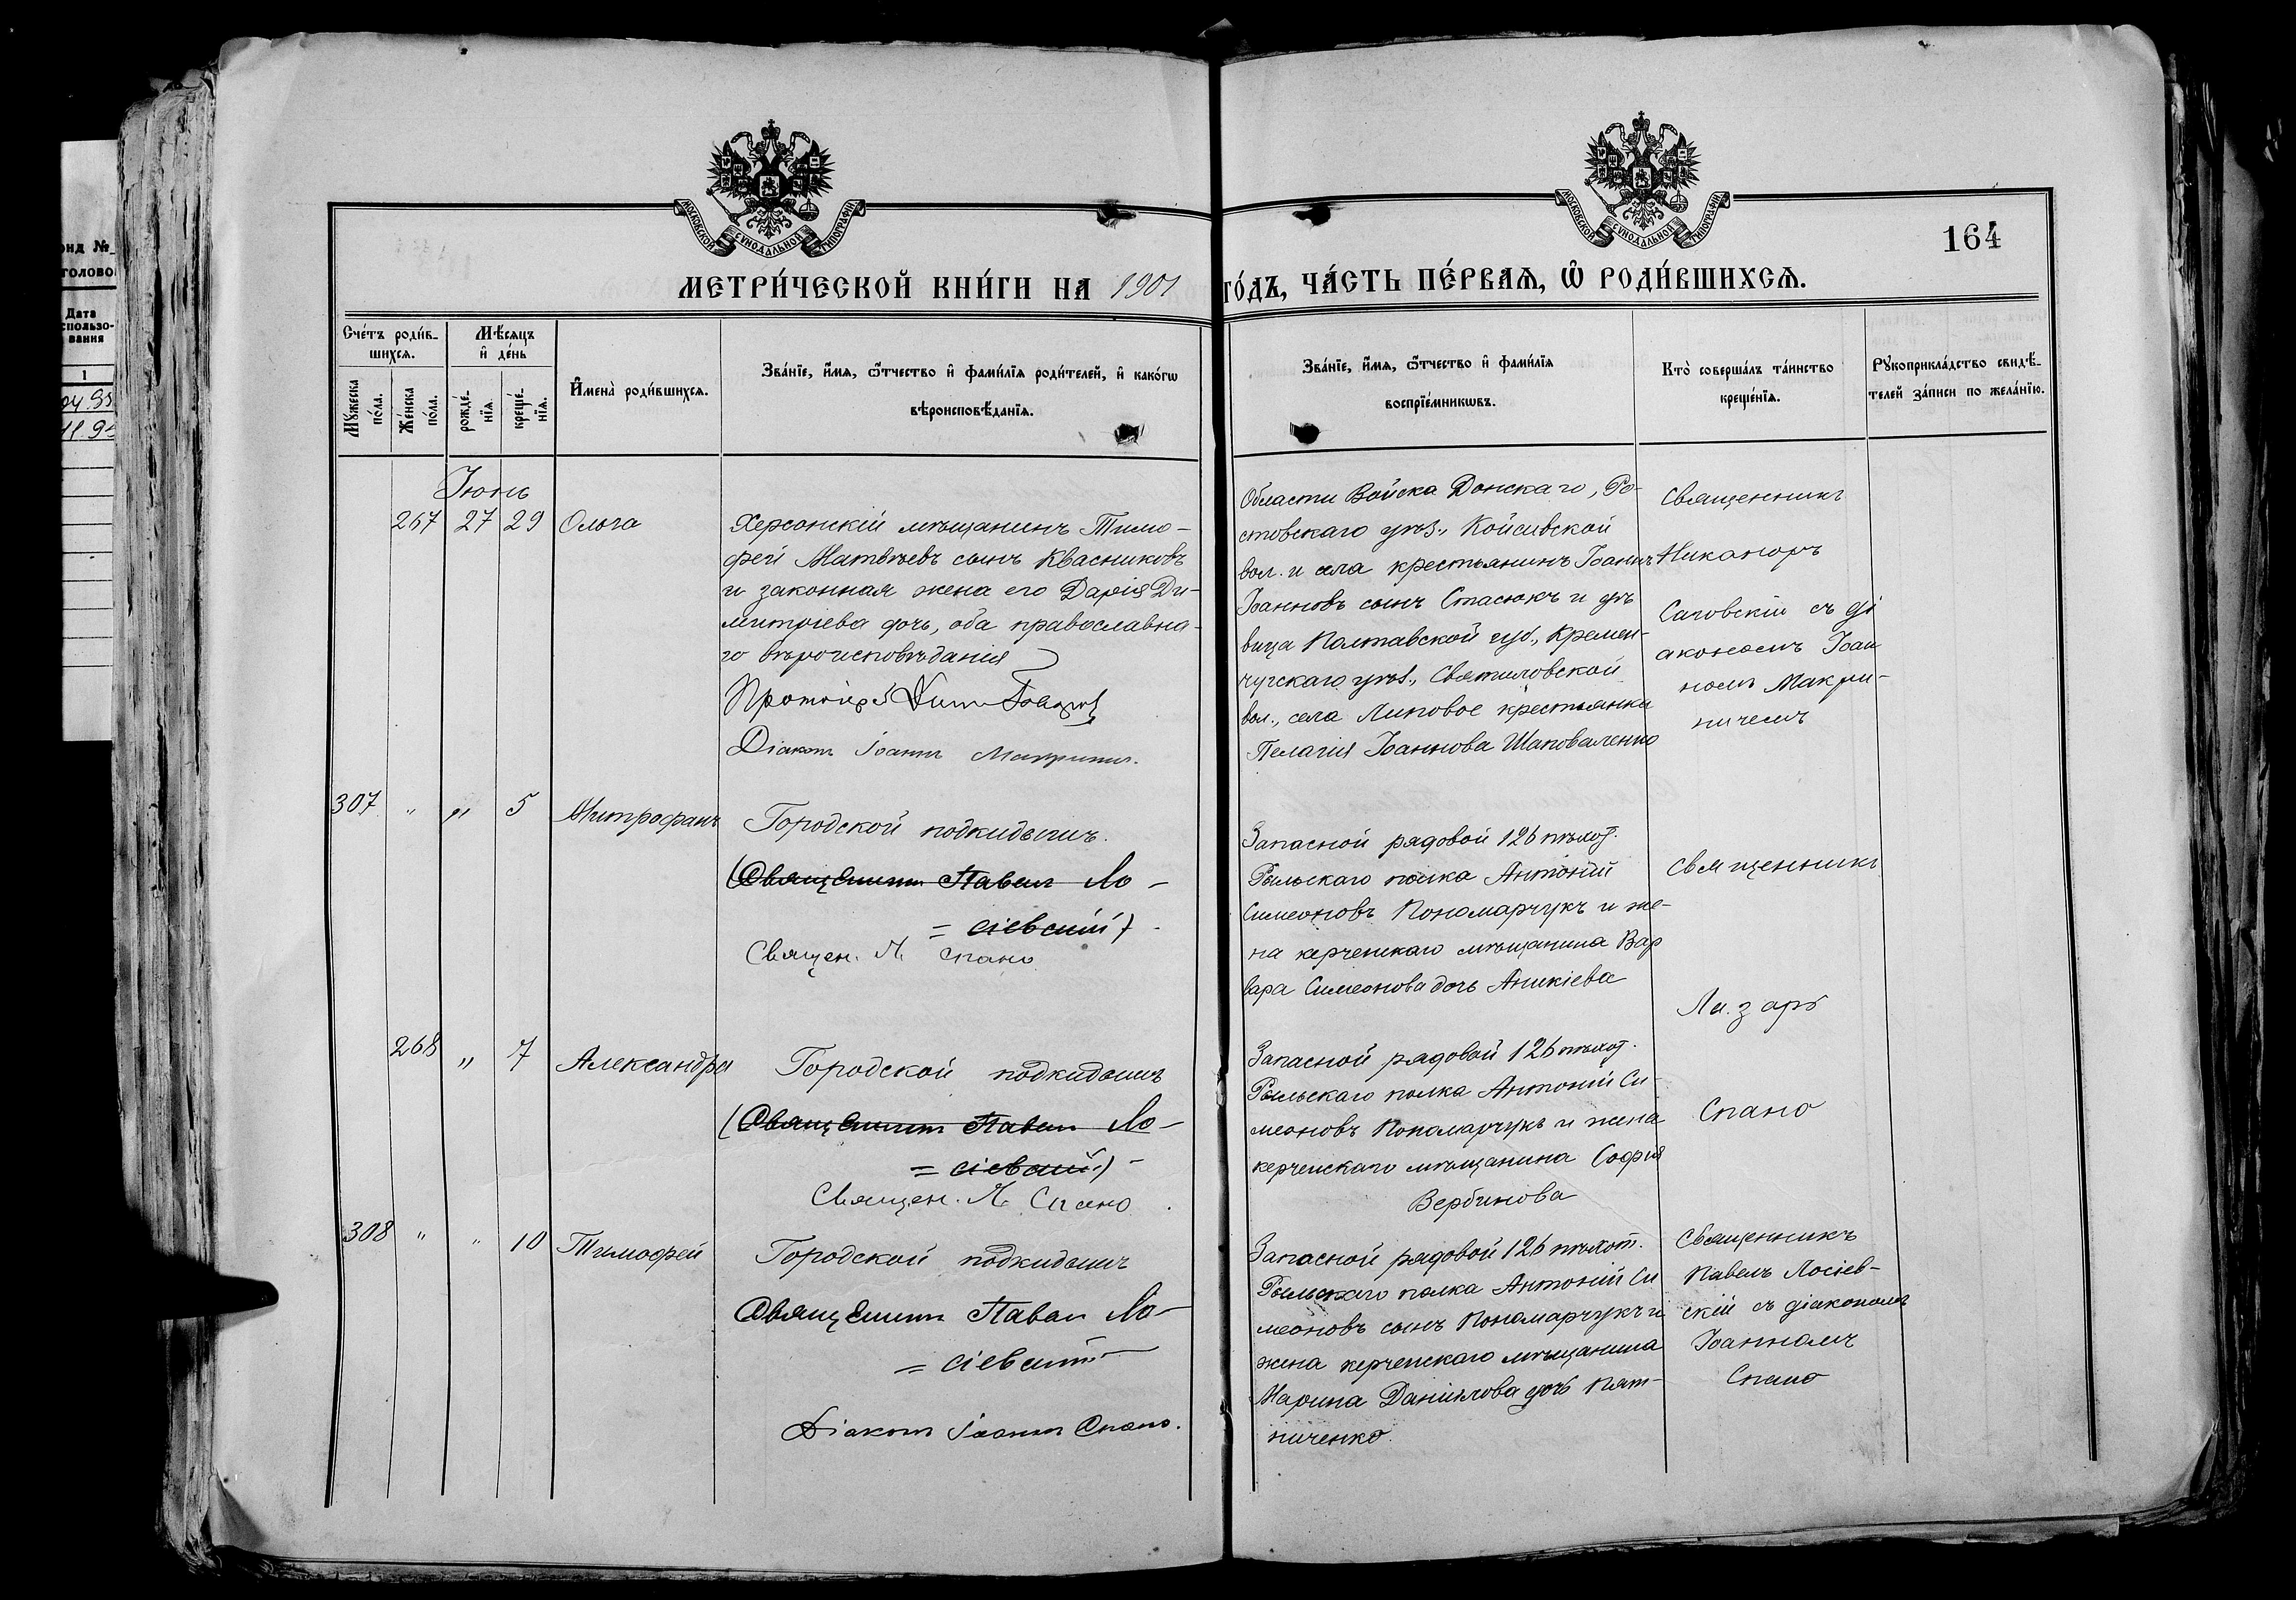 МОСКОВСКОЙ СѴНОДАЛЬНОЙ ТИПОГРАФІИ
МОСКОВСКОЙ СѴНОДАЛЬНОЙ ТИПОГРАФІИ
164
МЕТРИ́ЧЕСКОЙ КНИ́ГИ НА 1901 ГО́ДЪ, ЧА́СТЬ ПЕ́РВАѦ, Ѡ҆ РОДИ́ВШИХСѦ.
Сче́тъ роди́в-
шихсѧ.
Мѣ́сѧцъ
и҆ де́нь
Мꙋ́жеска
по́ла.
Же́нска
по́ла.
рожде́-
нїѧ.
креще́-
нїѧ.
И҆мена̀ роди́вшихсѧ.
Зва́нїе, и҆́мѧ, ѻ҆́тчество и҆ фами́лїѧ роди́телей, и҆ како́гѡ
вѣроисповѣ́данїѧ.
Зва́нїе, и҆́мѧ, ѻ҆́тчество и҆ фами́лїѧ
воспрїе́мникѡвъ.
Кто̀ соверша́лъ та́инство
креще́нїѧ.
Рꙋкоприкла́дство свидѣ́-
телей за́писи по жела́нїю.
Іюнь
267 27 29 Ольга
Херсонскій мѣщанинъ Тимо-
фей Матвѣевъ сынъ Квасниковъ
и законная жена его Дарія Ди-
митріева дочь, оба православна-
го вѣроисповѣданія
Протоіерей
Діаконъ Іоаннъ Макринич.
Области Войска Донскаго, Ро-
стовскаго уѣз., Койсивской
вол. и села крестьянинъ Іоаннъ
Іоанновъ сынъ Стасюкъ и дѣ
вица Полтавской губ., Кремен-
чугскаго уѣз., Святиловской
вол., села Липовое крестьянка
Пелагія Іоаннова Шаповаленко
Священникъ
Никаноръ
Саговскій съ ді
акономъ Іоан
номъ Макри-
ничемъ
307 " " 5 Митрофанъ
Городской подкидышъ.
(Священникъ Павелъ Ло-
= сіевскій)
Священ. Л. Спано
Запасной рядовой 126 пѣхот.
Рыльскаго полка Антоній
Симеоновъ Пономарчукъ и же-
на керченскаго мѣщанина Вар
вара Симеонова дочь Аникіева
Священникъ
Лазарь
268 " 7 Александра
Городской подкидышъ
(Священникъ Павелъ Ло-
= сіевскій)
Священ. Л. Спано
Запасной рядовой 126 пѣхот.
Рыльскаго полка Антоній Си-
меоновъ Пономарчукъ и жена
керченскаго мѣщанина Софія
Вербинова
Спано
308 " " 10 Тимофей
Городской подкидышъ
Священникъ Павелъ Ло-
= сіевскій
Діаконъ Іоаннъ Спано.
Запасной рядовой 126 пѣхот.
Рыльскаго полка Антоній Си
меоновъ сынъ Пономарчукъ и
жена керченскаго мѣщанина
Марина Даніилова дочь Пят-
ниченко.
Священникъ
Павелъ Лосіев-
скій съ діакономъ
Іоанномъ
Спано
Дата
1